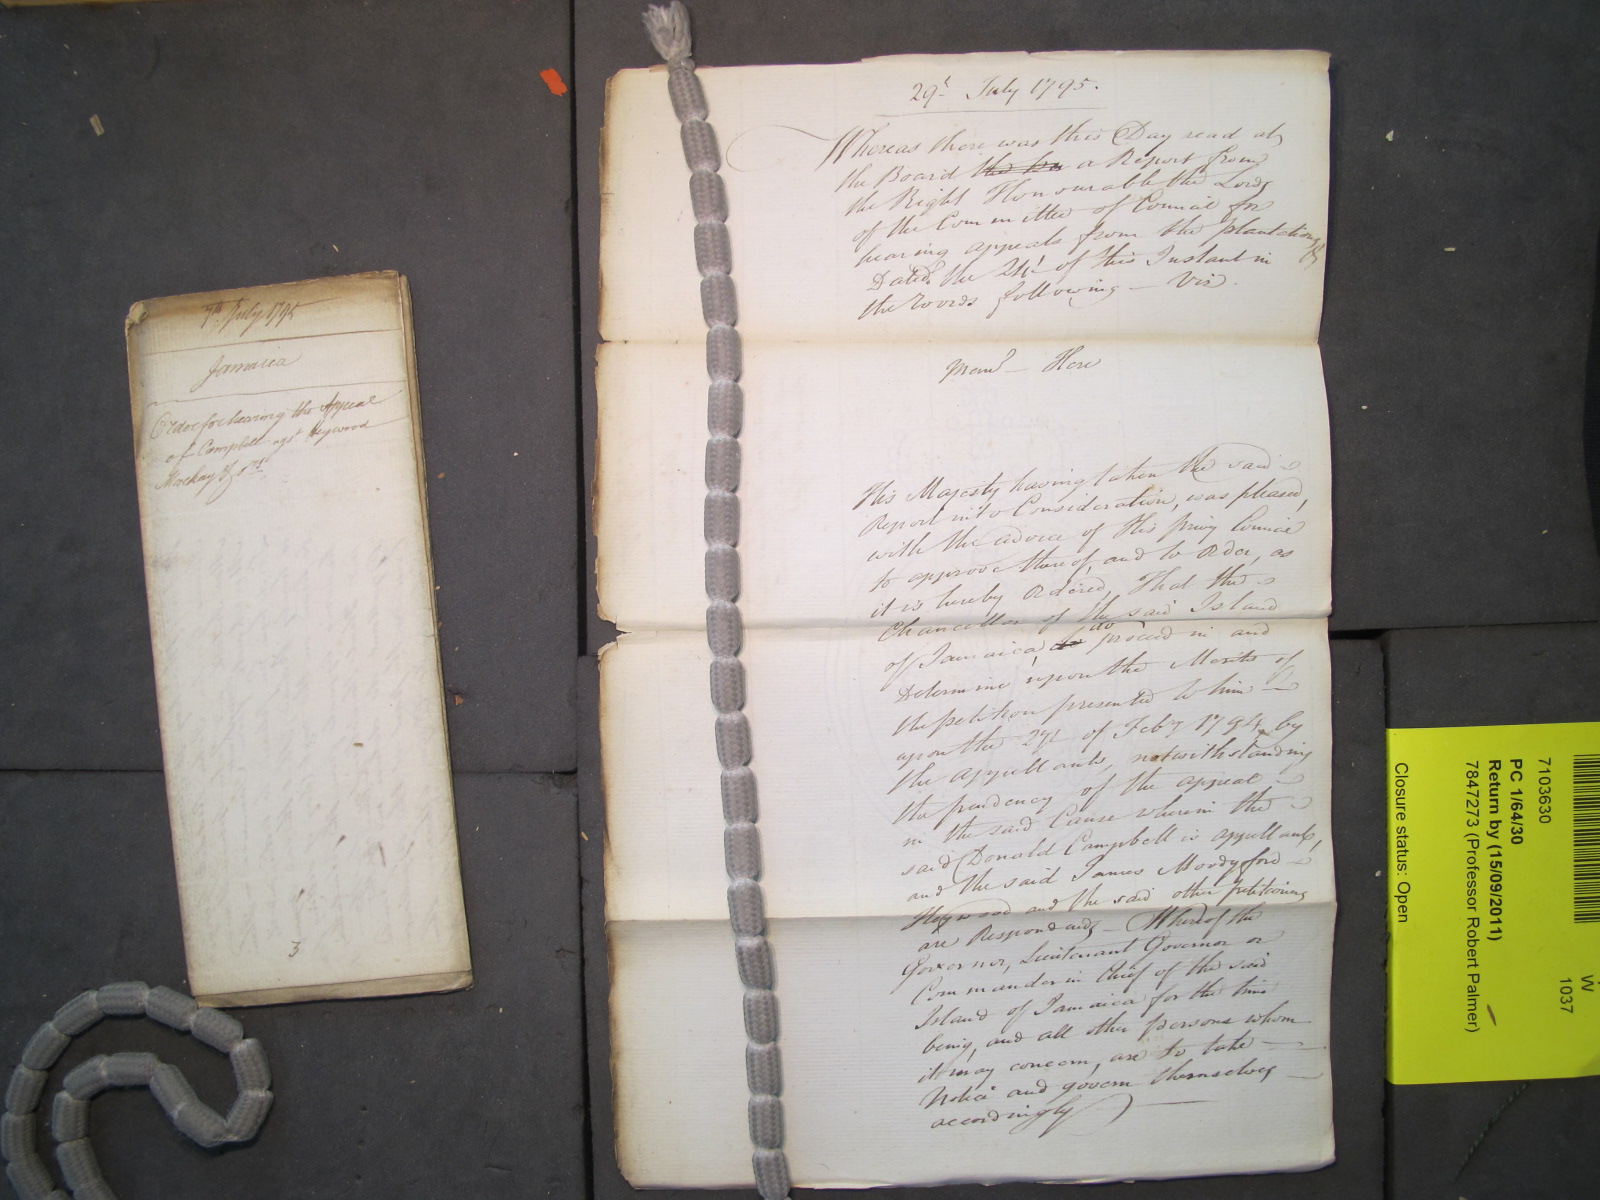 7th July 1795
Jamaica
Order for hearing the Appeal
of Campbell agst Heywood
Mackay &
3
29th July 1795.
Whereas there was this Day read at
the Board the a Report from
the Right Honourable the Lords
of the Committee of Council for
hearing appeals from the plantations &c
Dated the 24t of this Instant in
the Words following – Viz.
Memd – Here
His Majesty having taken the said
Report into Consideration, was pleased,
with the advice of His privy Council
to approve thereof, and to Order, as
it is hereby Ordered, That the
Chancellor of the said Island
of Jamaica, do do proceed in and
Determine upon the Merits of
the petition presented to him
upon the 27t of Feb'y 1794 by
the appellants, notwithstanding
the pendency of the appeal
in the said Cause wherein the
said Donald Campbell is appellant,
and the said James Modyford
Heywood and the said other petitioners
are Respondents – Whereof the
Governor, Lieutenant Governor or
Commander in Chief of the said
Island of Jamaica for the time
being, and all other persons whom
it may concern, are to take
Notice and govern themselves
accordingly
7103630
PC 1/64/30
Return by (15/09/2011)
7847273 (Professor Robert Palmer)
Closure status: Open
W
1037